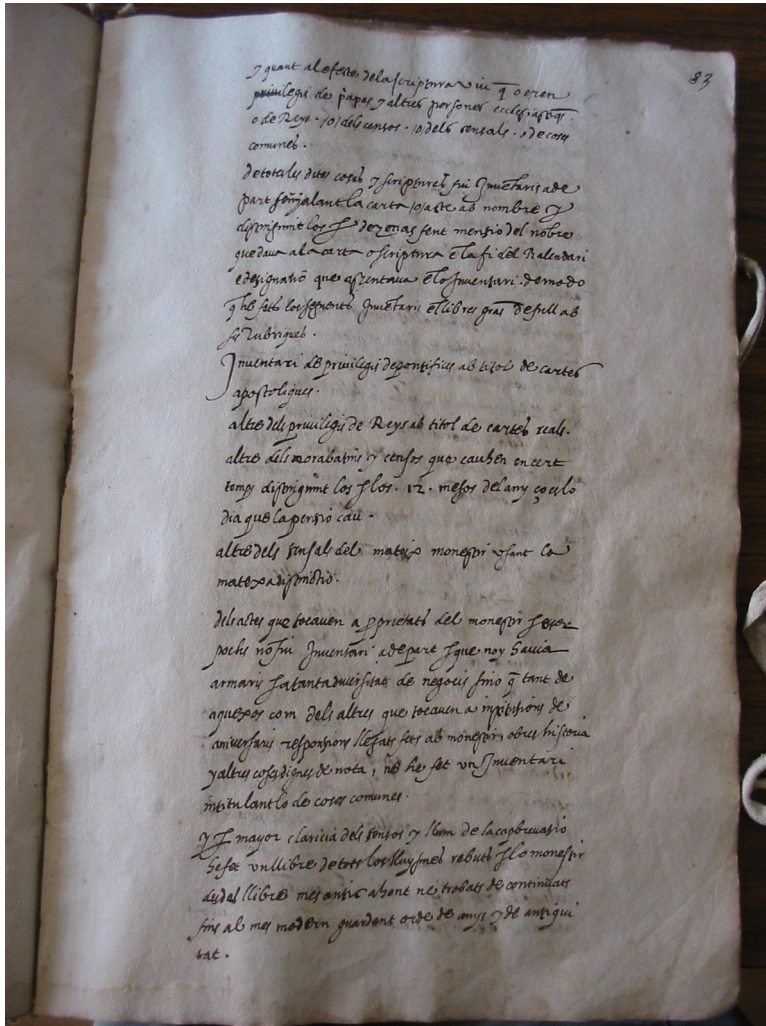 83
y quant al efecte de la scriptura viu q̃ o eren
privilegis de papes y altres persones ecclesiastiq̃s
o de Reys . /o/ dels censos . /o/ dels sensals . o de coses
comunes .
de totes les dites coses y scriptures fiu Inventaris a de
part señyalant la carta /o/ acte ab nombre y
distinguint los p dezenas fent mensio del nõbre
que dava a la carta o scriptura ẽ la fi del Kalendari
e designatiõ que assentava ẽ lo Inventari . de modo
q̃ he fets los seguents Inventaris ẽ llibres grãs de full ab
ses Rubriques .
Inventari de privilegis de pontifius ab titol de cartes
apostoliques .
altre dels privilegis de Reys ab titol de cartes reals .
altre dels morabatins y censos que cauhen en cert
temps distinguint los p los . 12 . mesos del any ço es lo
dia que la pensio cau .
altre dels sensals del mateix monestir usant la
matexa distinctio .
dels actes que tocaven a p̱prietats del monestir p esser
pochs no fiu Inventari a de part p que noy havia
armaris p a tanta diversitat de negocis sino q̃ tant de
aquexos com dels altres que tocaven a institusions de
aniversaris responsions llegats fets al monestir, obres historia
y altres coses dignes de nota, ne he fet un Inventari
intitulantlo de coses comunes .
y p mayor claricia dels sensos y llum de la capbrevatio
he fet un llibre de tots los lluysmes rebuts p lo monestir
des del llibre mes antic ahont ne trobats de continuats
fins al mes modern guardent orde de anys y de antigui
tat .